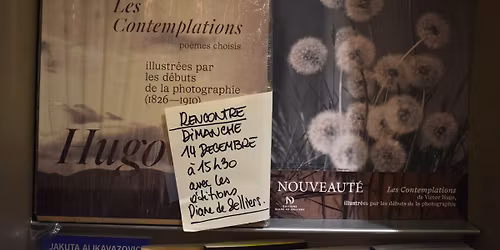 Les
Contemplations
poèmes choisis
illustrées par
les débuts
de la photographie
(1826—1910)
Hugo
RENCONTRE
DIMANCHE
14 DECEMBRE
à 15h30
avec les
éditions
Diane de Selliers.
NOUVEAUTÉ
Les Contemplations
de Victor Hugo,
illustrées par les débuts de la photographie
DIANE DE SELLIERS
JAKUTA ALIKAVAZOVIC